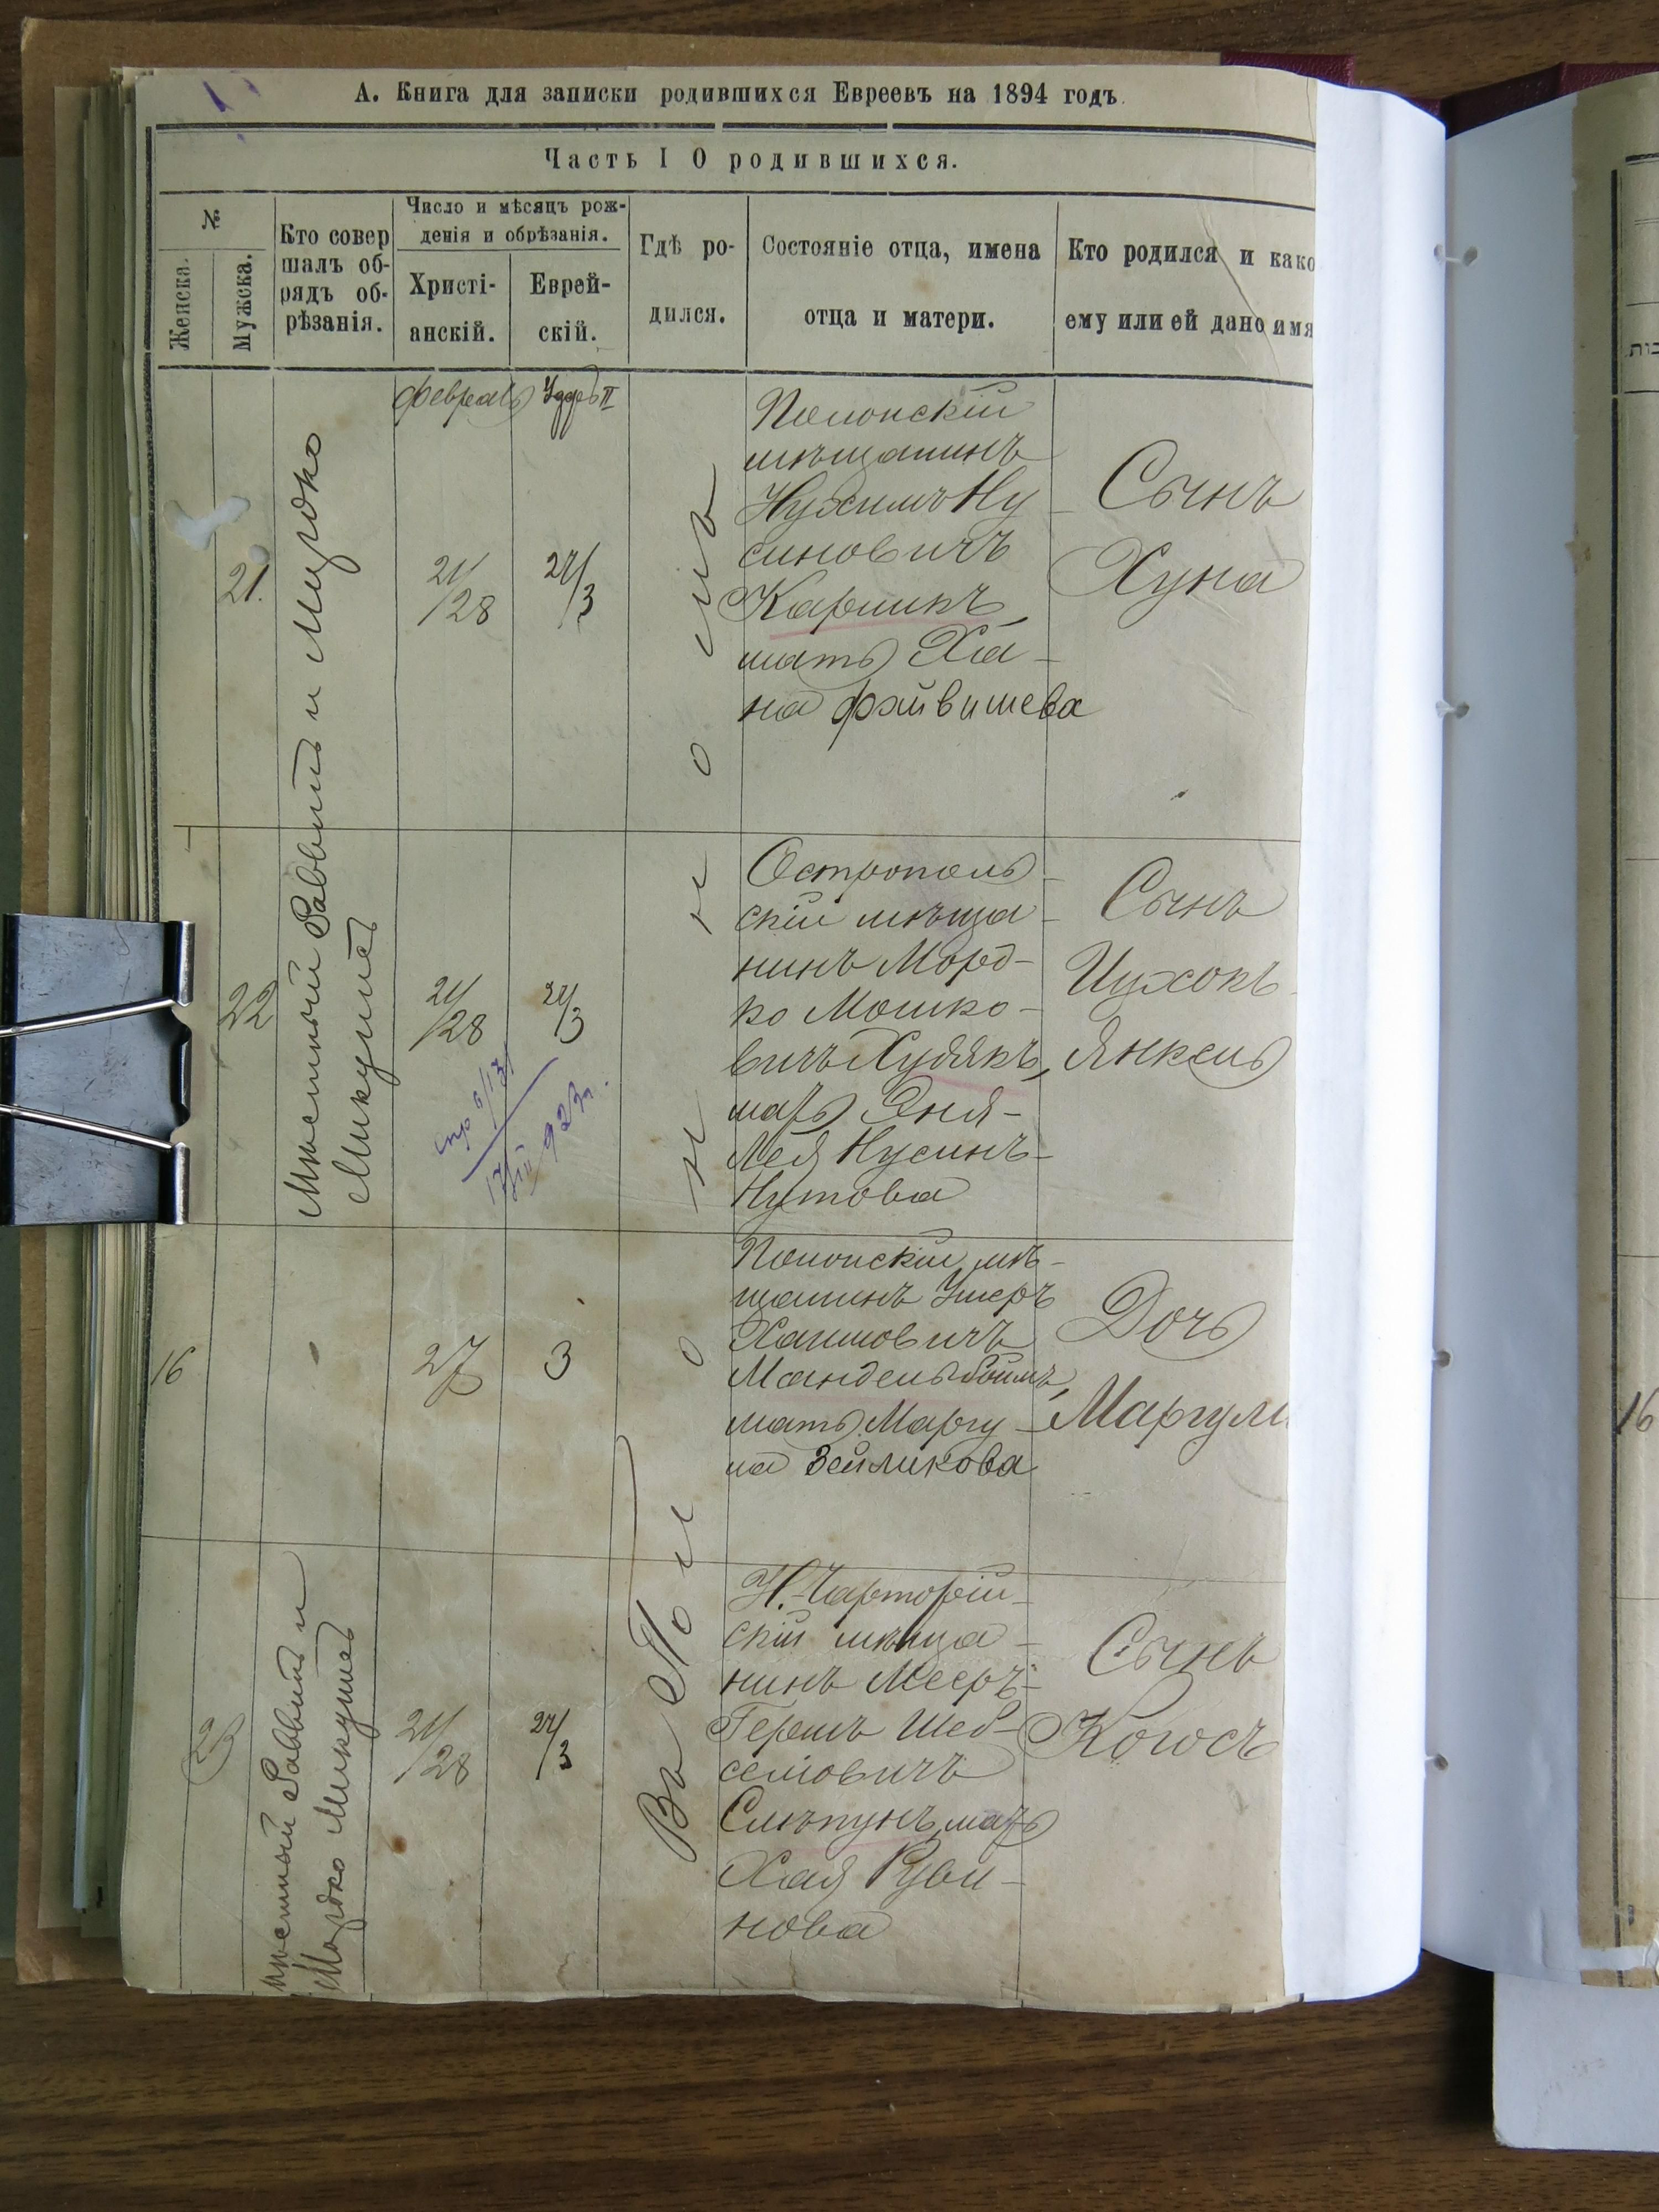 А. Книга для записки родившихся Евреевъ на 1894 годъ.
Часть I О родившихся.
№
Женска.
Мужска.
Кто совер
шалъ об-
рядъ об-
рѣзанія.
Число и мѣсяцъ рож-
денія и обрѣзанія.
Христі-
анскій.
Еврей-
скій.
Гдѣ ро-
дился.
Состояніе отца, имена
отца и матери.
Кто родился и како
ему или ей дано имя
Февраль
II
21.
Мѣстный Раввинъ и Мордко
Микушъ
21/28
Въ Полонномъ
Полонскій
мѣщанинъ
Нухимъ Ну
синовичъ
Карликъ
мать Ха-
на Файвишева
Сынъ
Хуна
22
21/28
21/3
Острополь-
скій мѣща-
нинъ Морд-
ко Мошко-
вичъ Худякъ,
мать Эня-
Лея Нусинъ-
Нутова
Сынъ
Цухокъ-
Янкель
923г.
16
27
3
Полонскій мѣ-
щанинъ Ушеръ
Хаимовичъ
Мандельбоимъ,
мать Маргу-
ла Зейликова
Дочь
Маргули
23
мѣстный Раввинъ и
Мордко Микушъ
21/28
21/3
Н.-Чарторій-
скій мѣща-
нинъ Мееръ-
Гершъ Шеб-
селіовичъ
Слѣпунъ, мать
Хая Руви-
нова
Сынъ
16